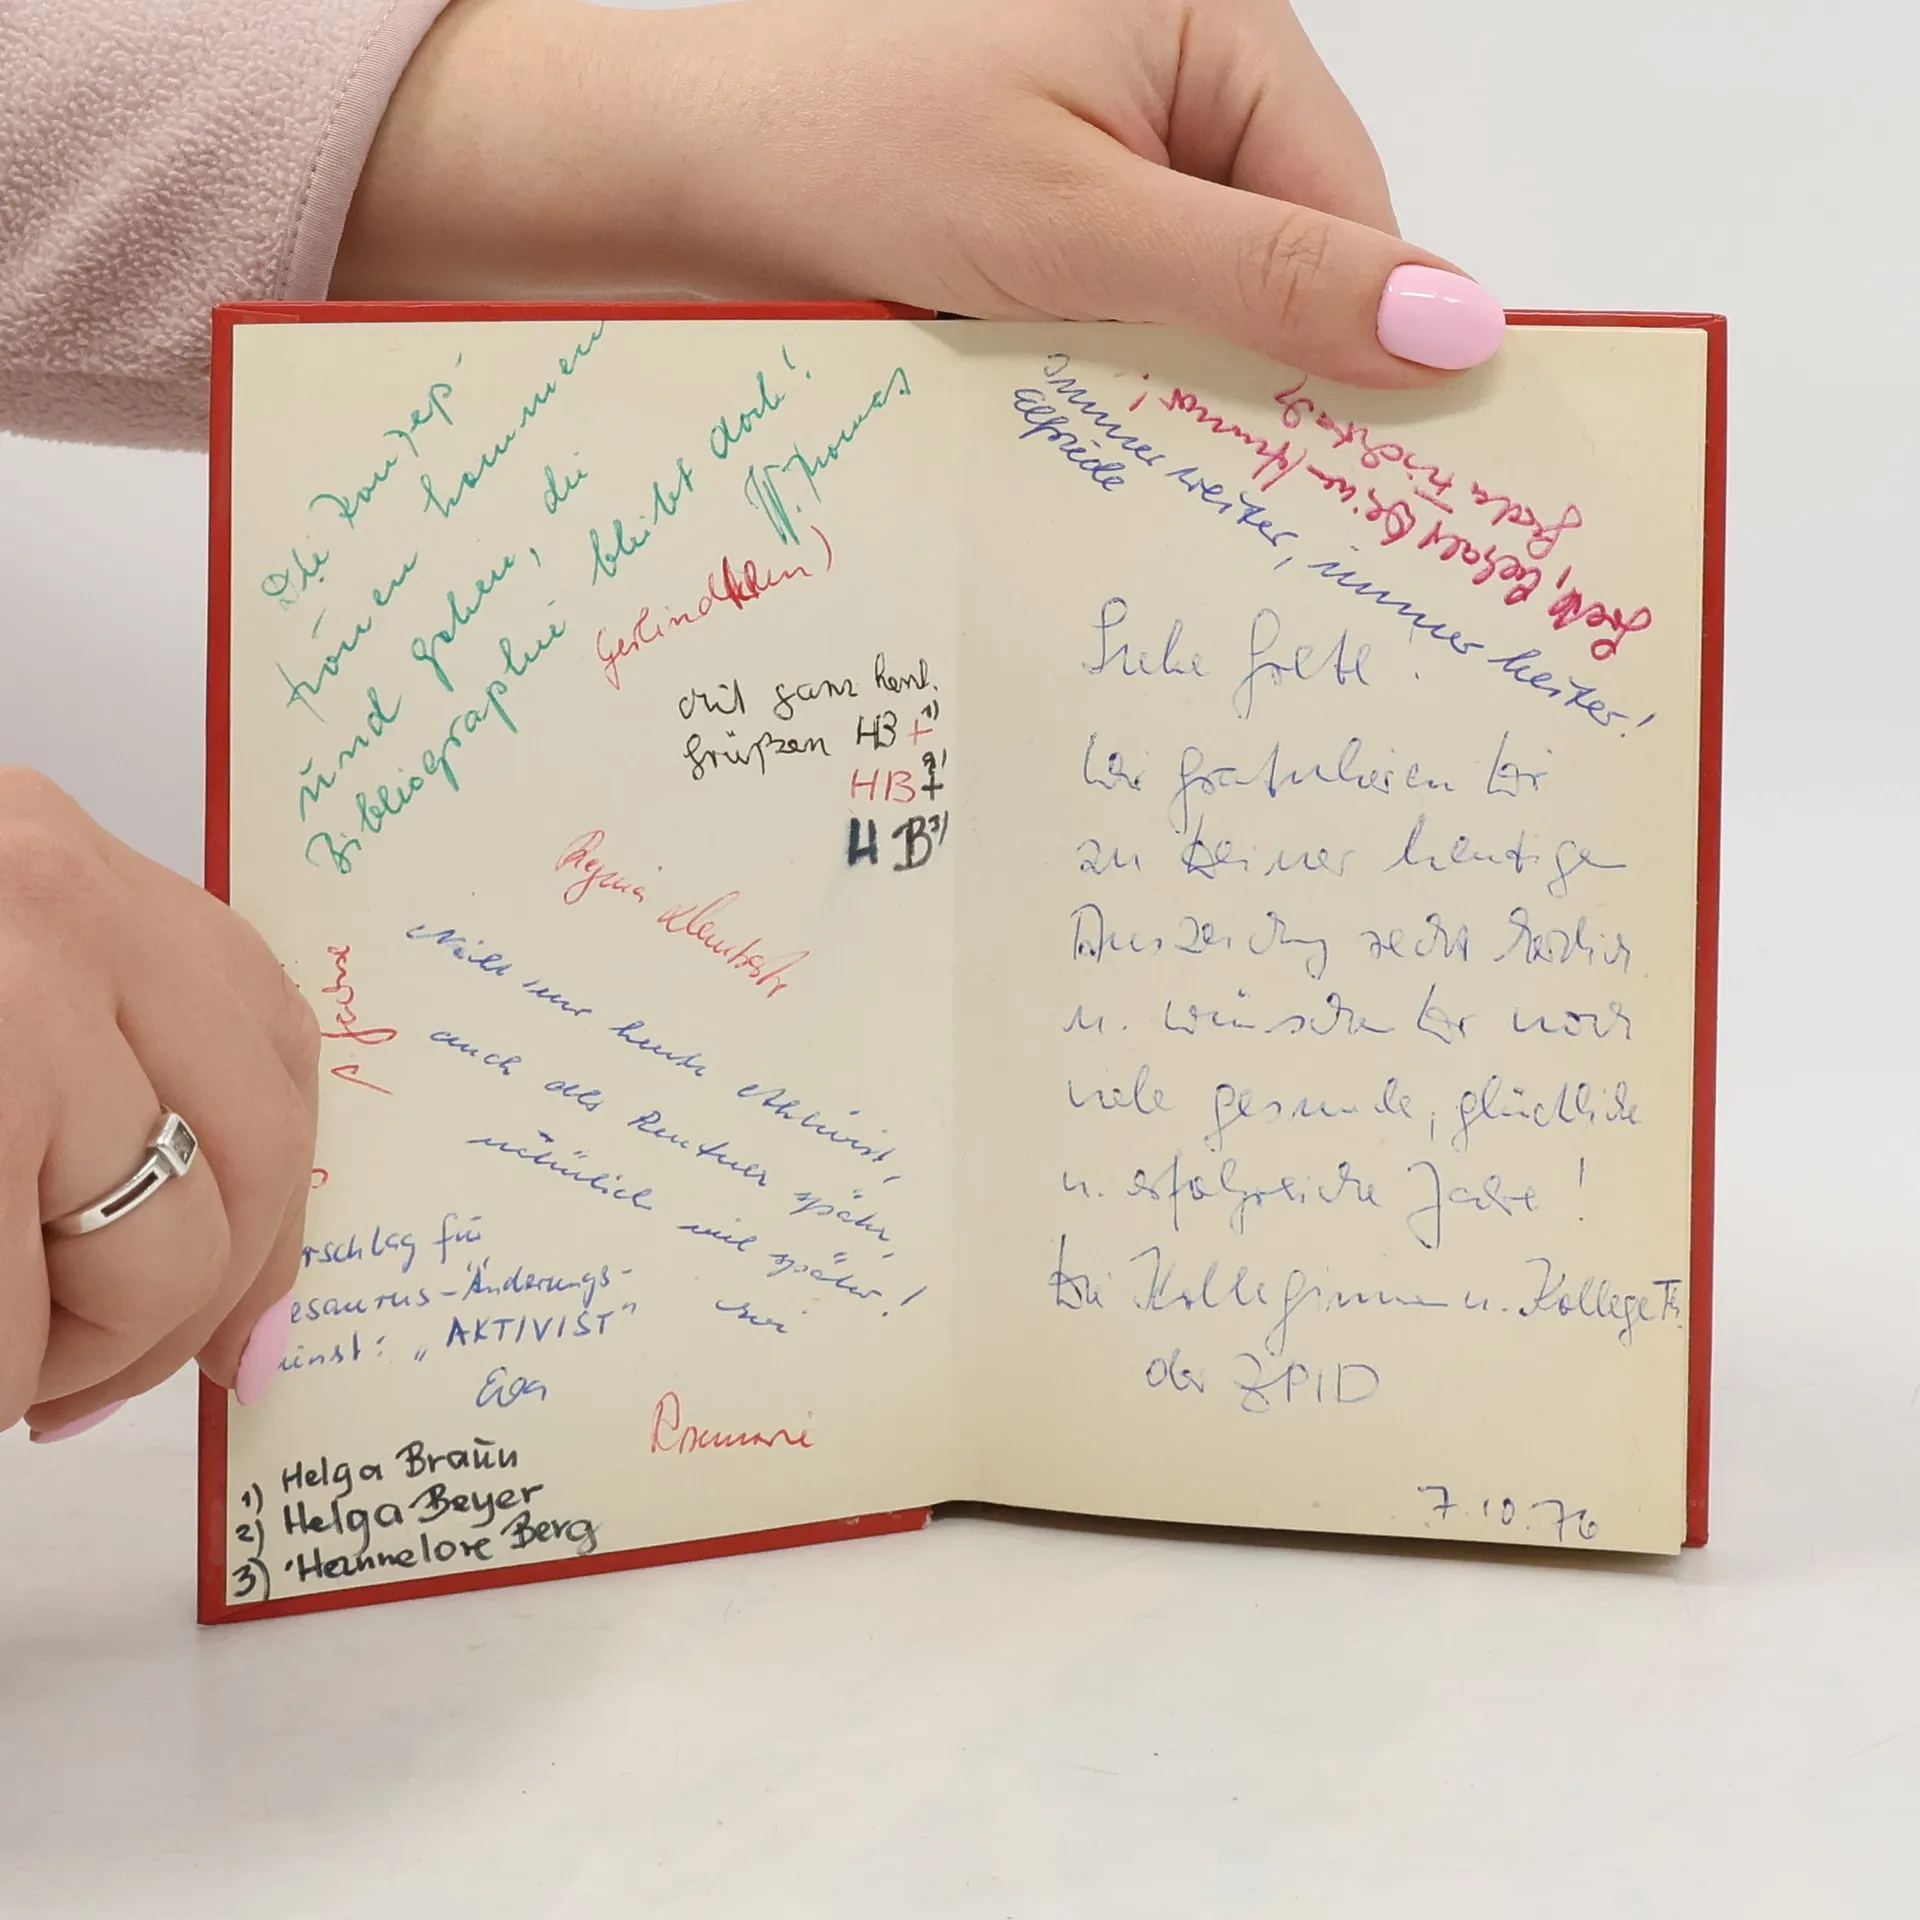 Die Konzep
können kommen
und gehen, die
Bibliographie bleibt doch!
W. Thomas
mit ganz herzl.
Grüßen HB + 1)
HB + 2)
H B 3)
Regina
Nicht nur heute Aktivist,
auch als Rentner später,
natürlich viel später!
rschlag für
esaurus-Änderungs-
ienst: „AKTIVIST"
Eva
Rosemarie
1) Helga Braun
2) Helga Beyer
3) Hannelore Berg
Immer weiter, immer heiter!
Elfriede
Grete, behalt Deinen Humor!
Liebe Grete!
Wir gratulieren Dir
zu Deiner heutigen
Auszeichng recht herzlich
u. wünschen Dir noch
viele gesunde, glückliche
u. erfolgreiche Jahre!
Die Kolleginnen u. Kollege Th.
der ZPID
7.10.76